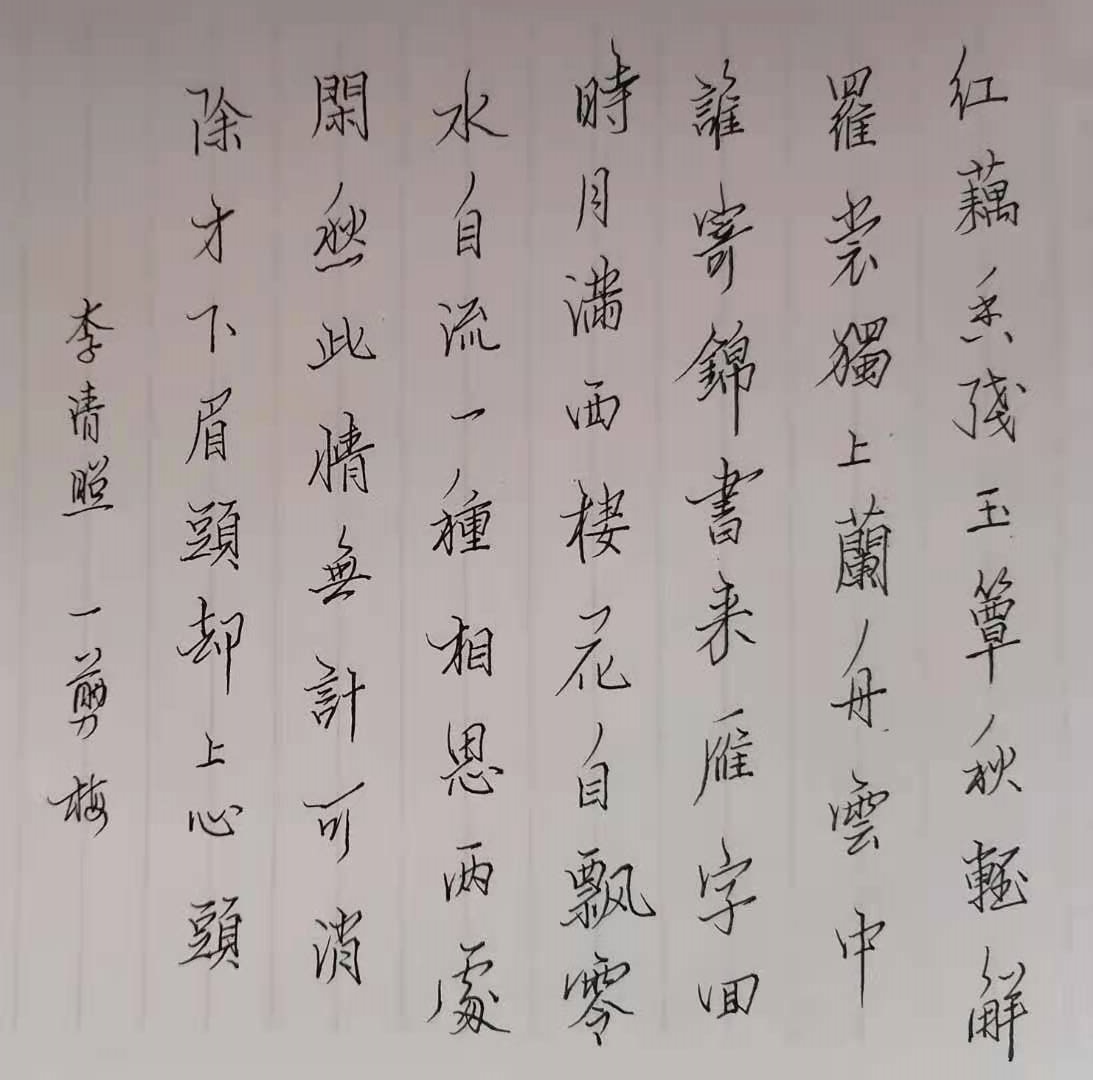 紅藕香殘玉簟秋輕解
羅裳獨上蘭舟雲中
誰寄錦書来雁字回
時月滿西樓花自飘零
水自流一種相思兩處
閑愁此情無計可消
除才下眉頭却上心頭
李清照 一剪梅